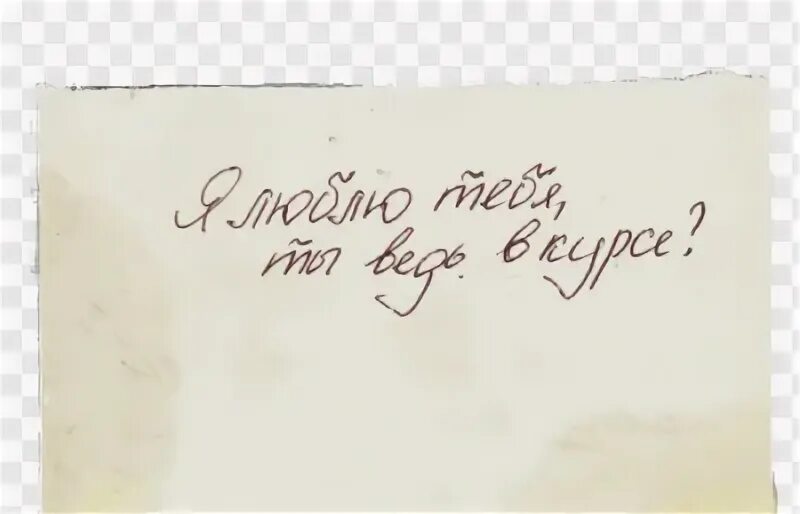 Я люблю тебя,
ты ведь в курсе?